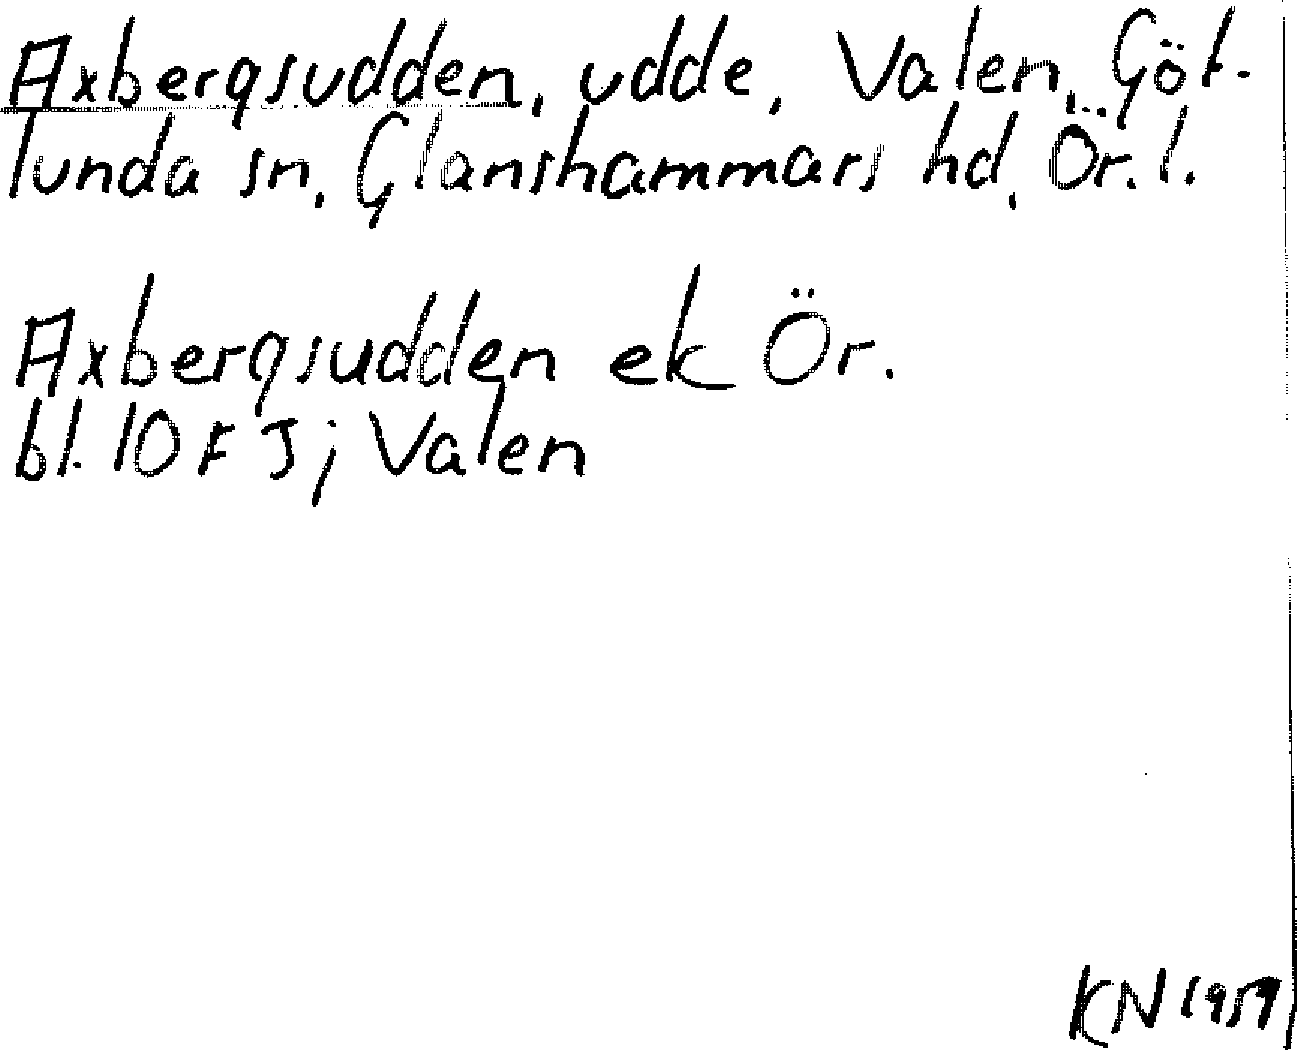 Axbergsudden, udde, Valen, Göt-
lunda sn, Glanshammars hd, Ör. l.
Axbergsudden ek Ör.
bl. 10 F J; Valen
KN